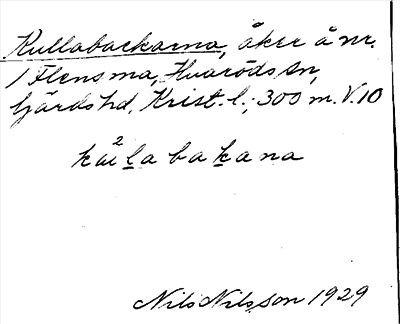 Kullabackarna, åker å nr.
1 Flensma, Hvaröds sn,
Gärds hd, Krist. l.; 300 m. V. 10
Nils Nilsson 1929